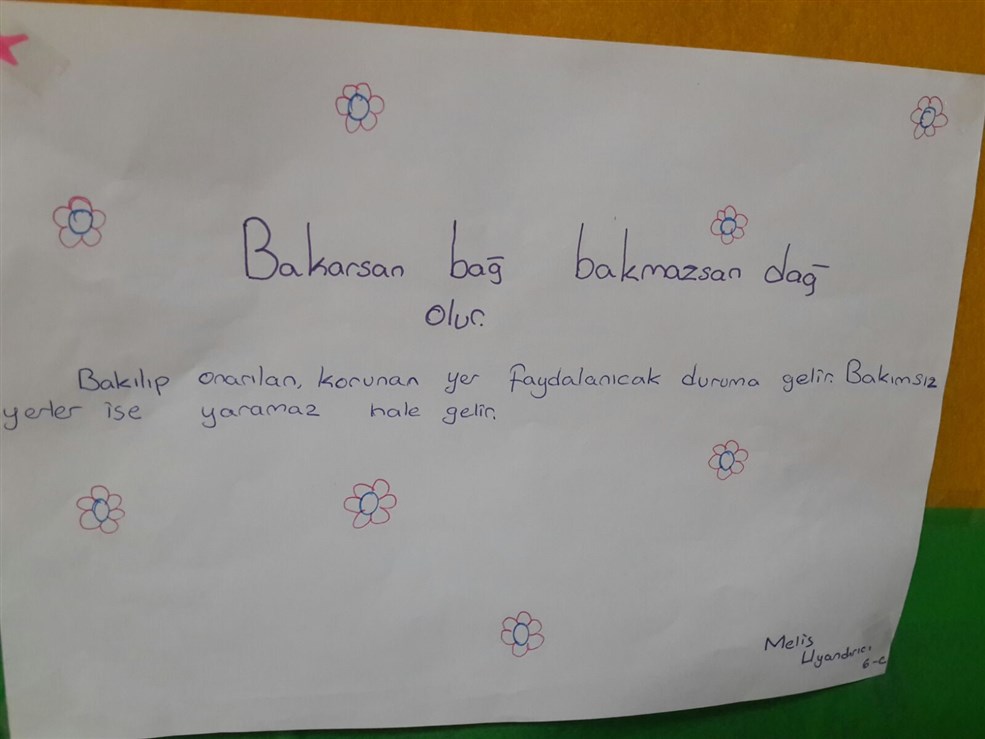 Bakarsan bağ bakmazsan dağ
olur.
Bakılıp onarılan, korunan yer faydalanıcak duruma gelir. Bakımsız
yerler ise yaramaz hale gelir.
Melis
Uyandırıcı
6-C